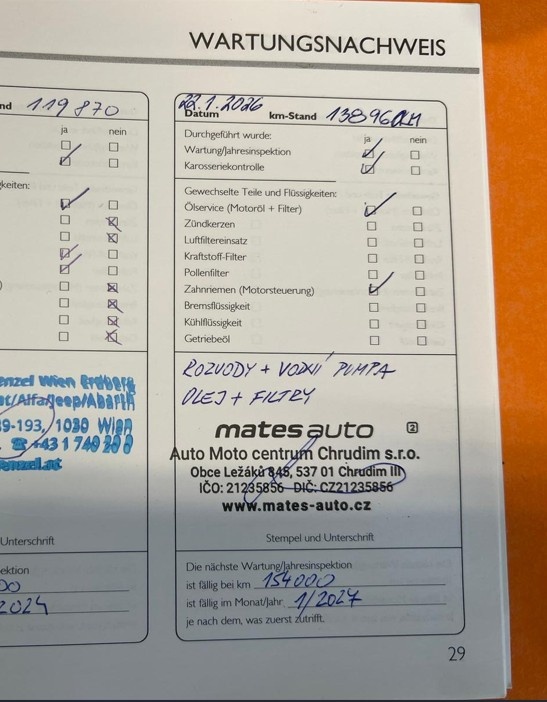 WARTUNGSNACHWEIS
nd 119 870
ja nein
keiten:
enzel Wien Erdberg
at/Alfa/Jeep/Abarth
9-193, 1030 Wien
☎ +43 1 740 20 0
enzel.at
Unterschrift
ektion
00
2024
22.1.2026
Datum km-Stand 138960KM
Durchgeführt wurde: ja nein
Wartung/Jahresinspektion
Karosseriekontrolle
Gewechselte Teile und Flüssigkeiten:
Ölservice (Motoröl + Filter)
Zündkerzen
Luftfiltereinsatz
Kraftstoff-Filter
Pollenfilter
Zahnriemen (Motorsteuerung)
Bremsflüssigkeit
Kühlflüssigkeit
Getriebeöl
ROZVODY + VODNÍ PUMPA
OLEJ + FILTRY
mates auto 2
Auto Moto centrum Chrudim s.r.o.
Obce Ležáků 848, 537 01 Chrudim III
IČO: 21235856 DIČ: CZ21235856
www.mates-auto.cz
Stempel und Unterschrift
Die nächste Wartung/Jahresinspektion
ist fällig bei km 154000
ist fällig im Monat/Jahr 1/2027
je nach dem, was zuerst zutrifft.
29